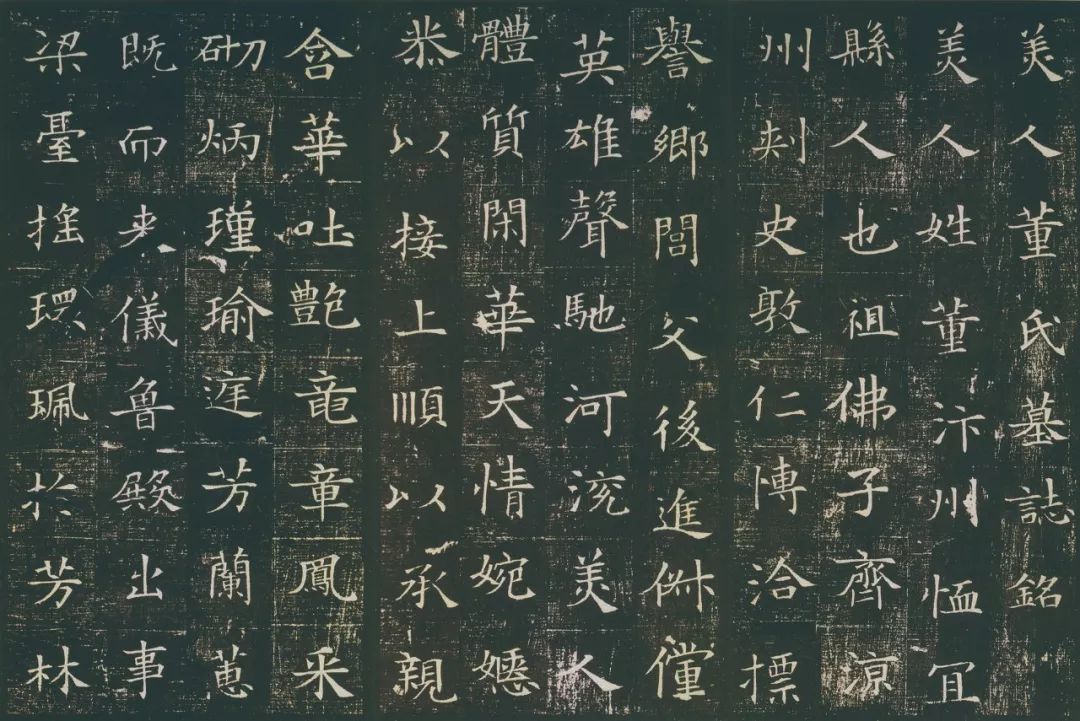 美人董氏墓誌銘
美人姓董汴州恤冝
縣人也祖佛子齊涼
州刾史敦仁博洽摽
譽鄉閭父後進俶儻
英雄聲馳河渷美人
體質閑華天情婉嫕
恭以接上順以承親
含華吐艶竜章鳳采
砌炳瑾瑜庭芳蘭蕙
既而来儀魯殿出事
梁臺搖環珮於芳林